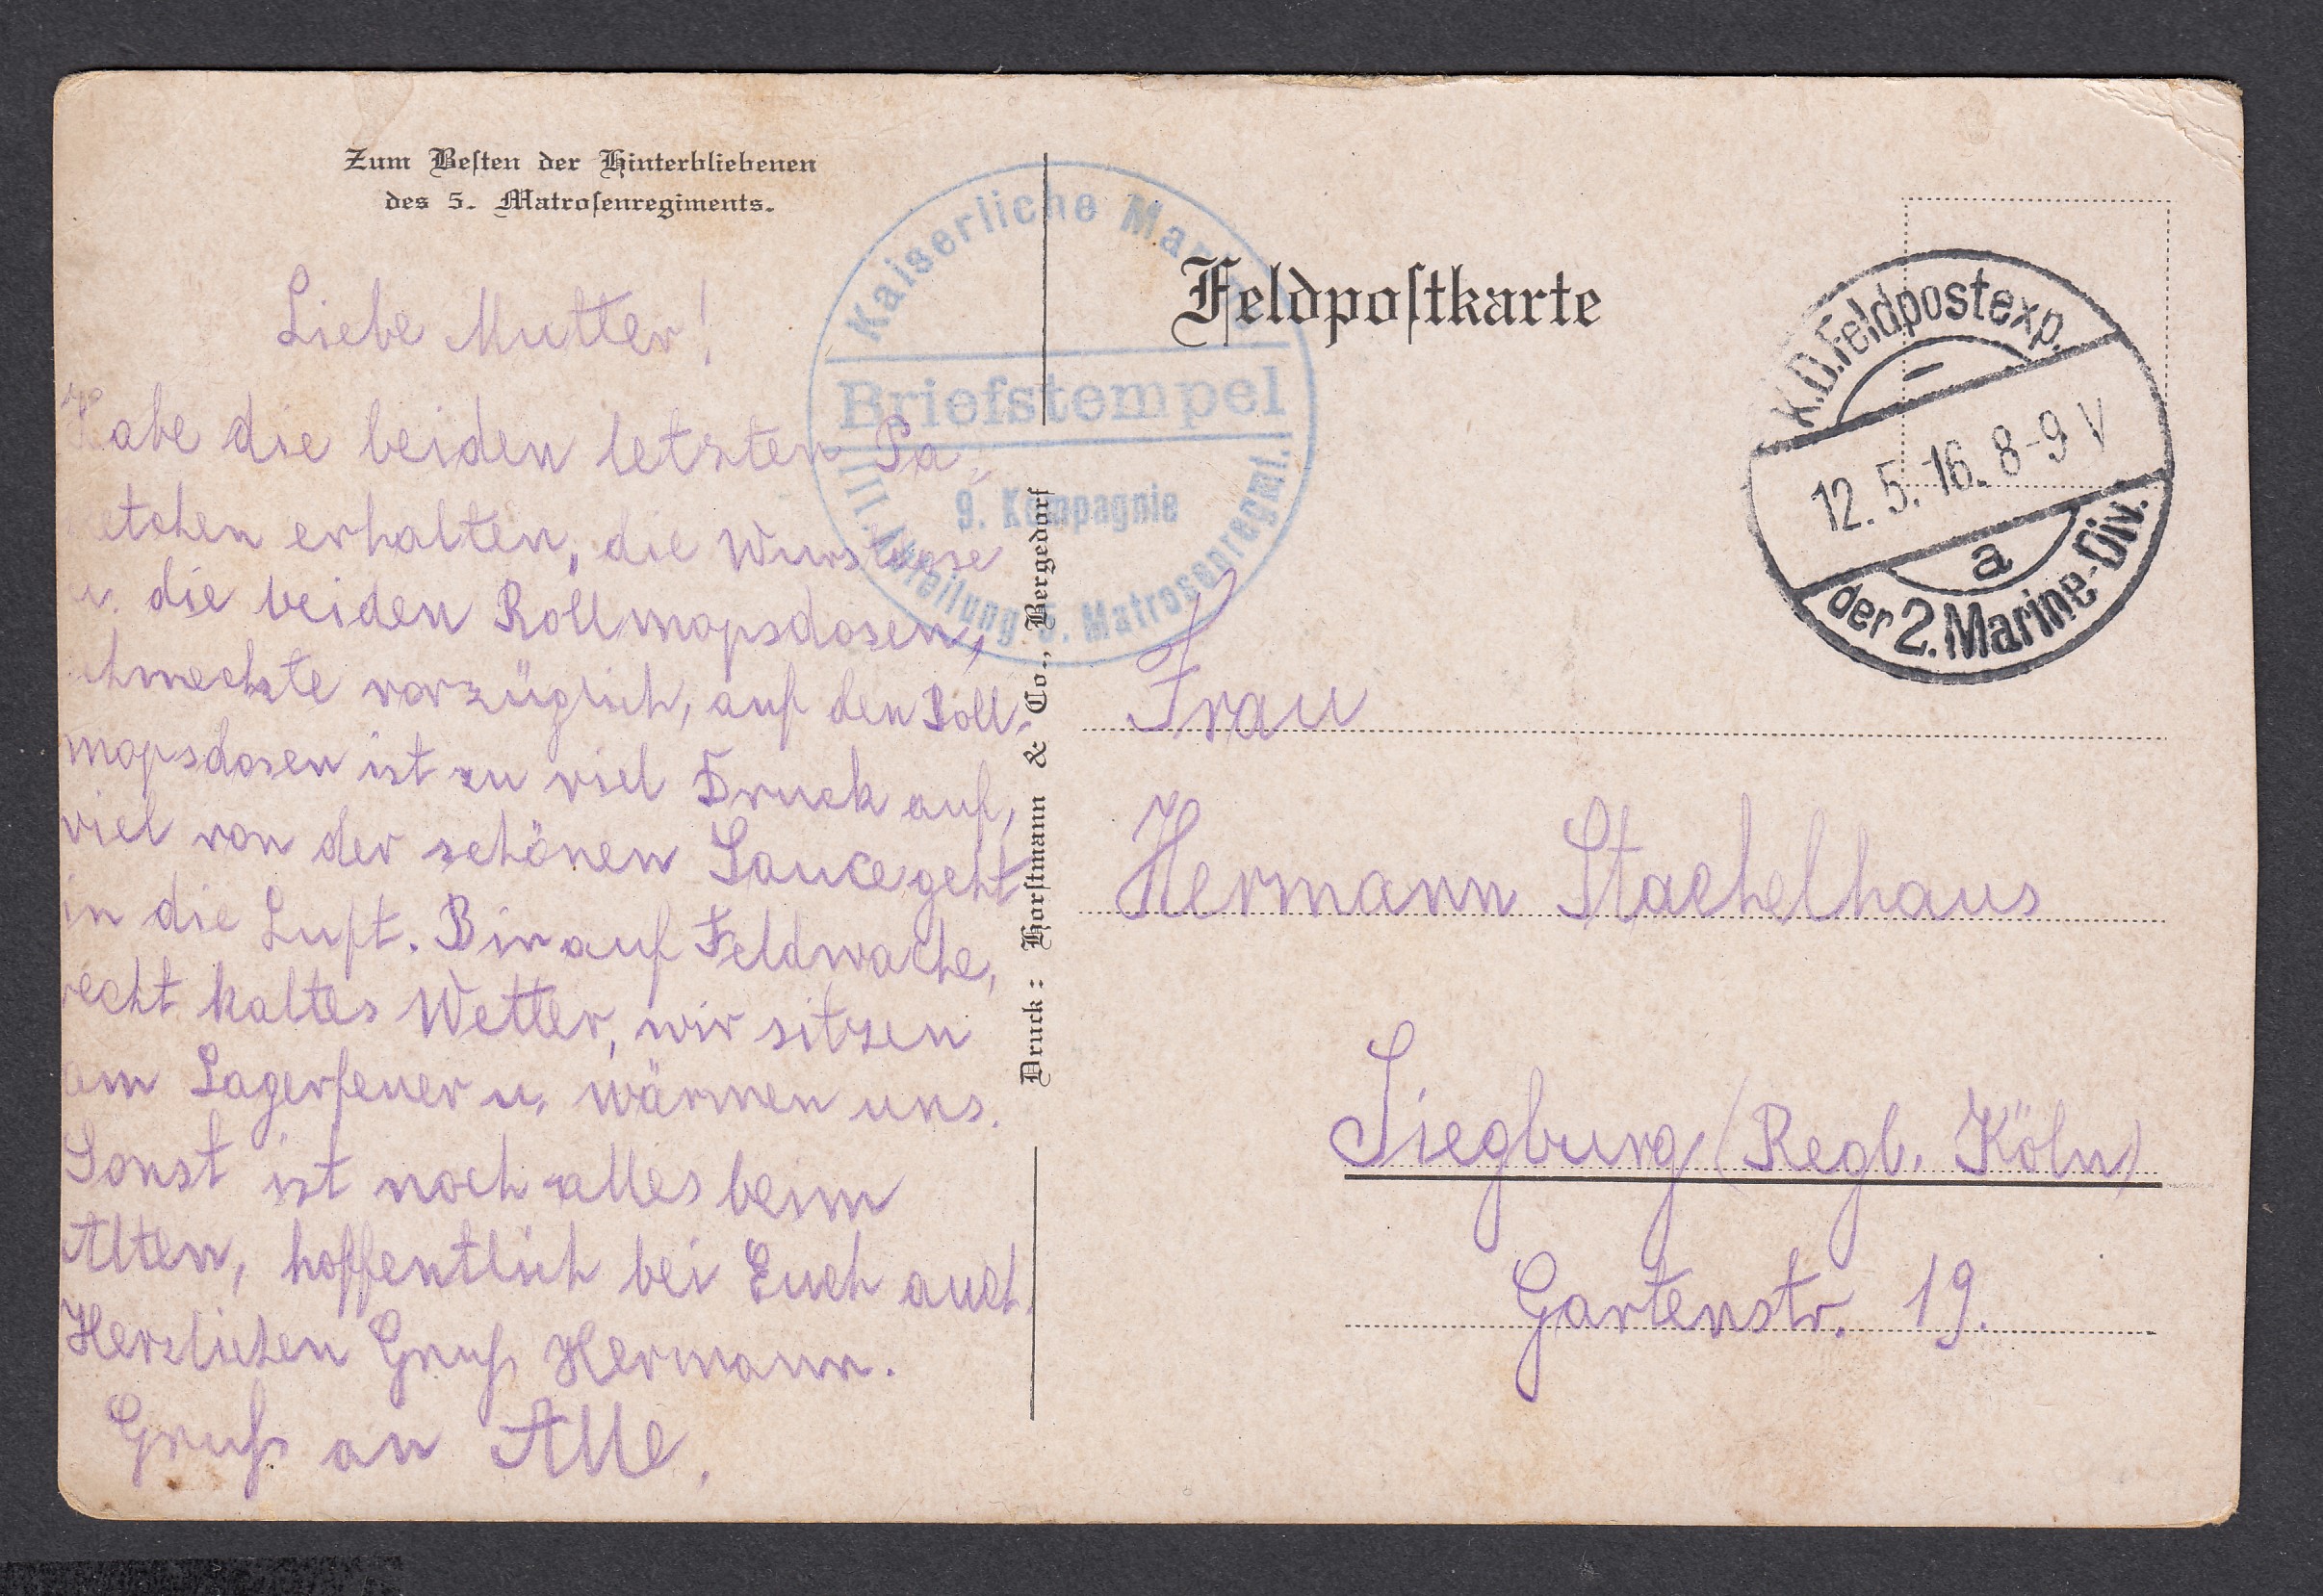 Zum Beſten der Hinterbliebenen
des 5. Matroſenregiments.
Liebe Mutter!
Habe die beiden letzten Pa-
ketchen erhalten, die
u. die beiden Rollmopsdosen,
schmeckte vorzüglich, auf den Roll-
mopsdosen ist zu viel Druck auf,
viel von der schönen Sauce geht
in die Luft. Bin auf Feldwache,
recht kaltes Wetter, wir sitzen
am Lagerfeuer u. wärmen uns.
Sonst ist noch alles beim
Alten, hoffentlich bei Euch auch.
Herzlichen Gruß Hermann.
Gruß an Alle.
Kaiserliche Marine
Briefstempel
9. Kompagnie
III. Abteilung 5. Matrosenregmt.
Druck: Horſtmann & Co., Bergedorf
Feldpoſtkarte
K.D.Feldpostexp.
12.5.16. 8-9 V
a
der 2. Marine-Div.
Frau
Hermann Stachelhaus
Siegburg (Regb. Köln)
Gartenstr. 19.